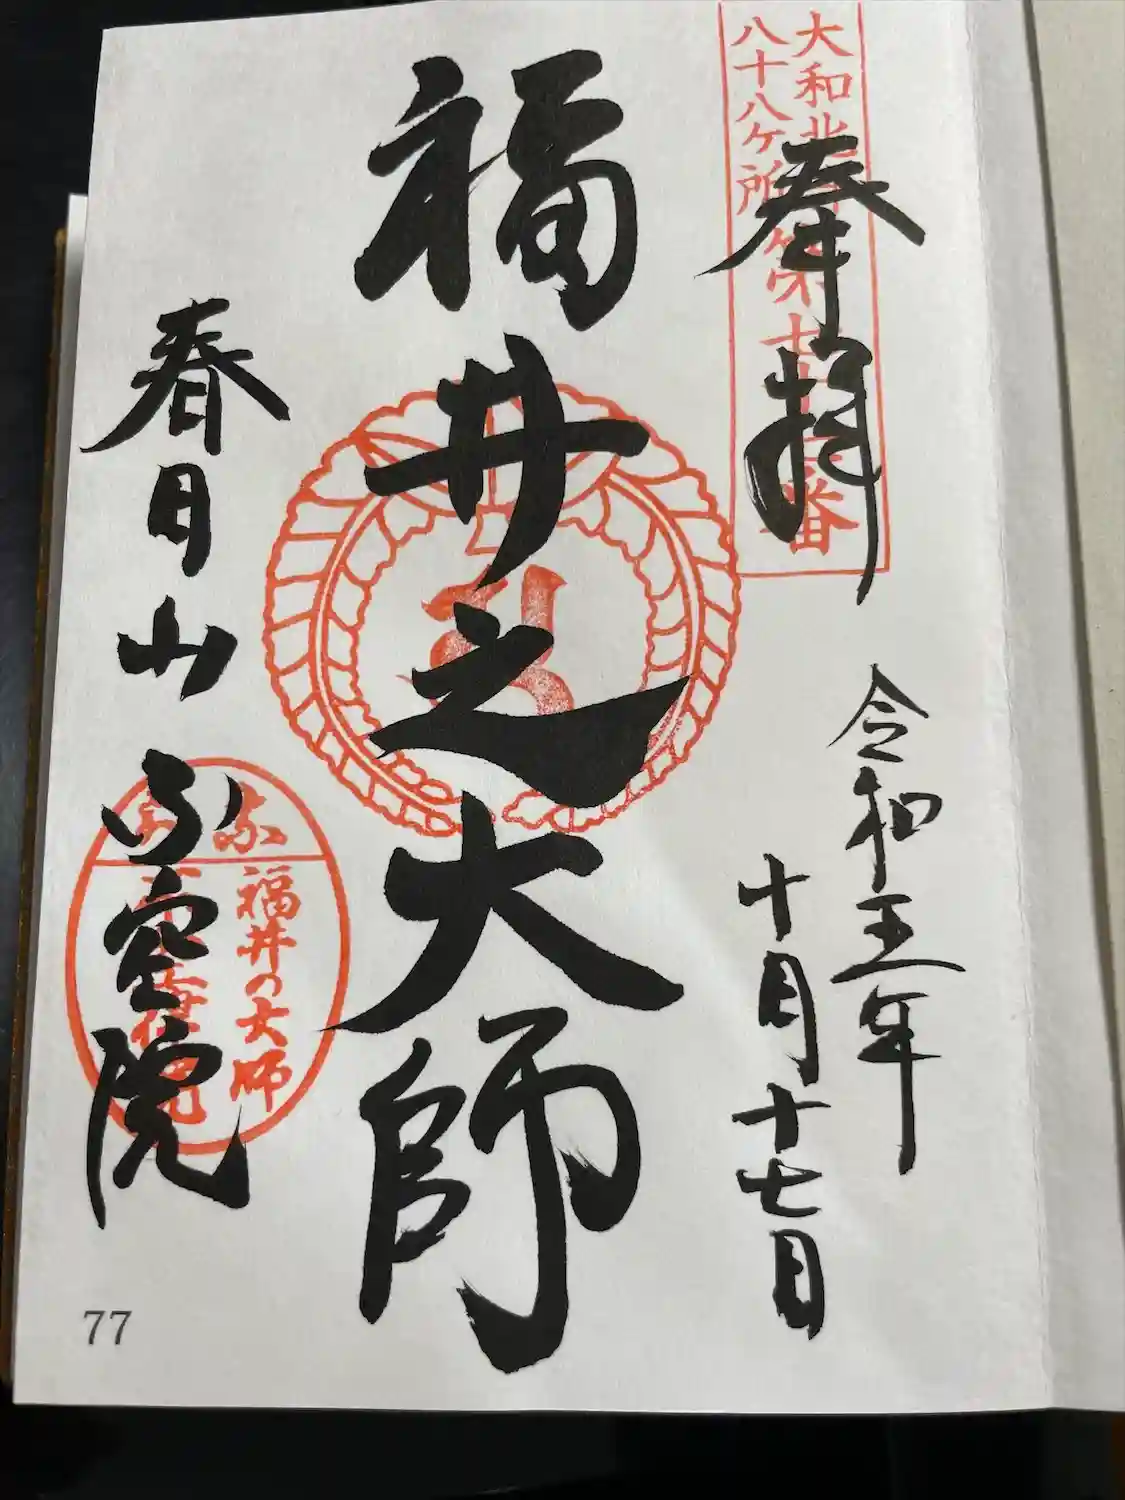 大和北部
八十八ヶ所
第七十七番
奉拝
令和五年
十月十七日
福井之大師
春日山
不空院
奈良
福井の大師
不空院
77